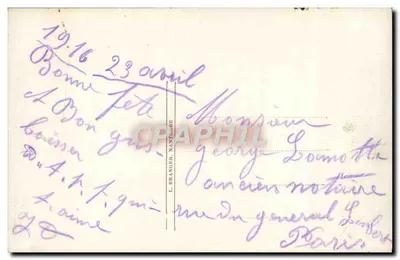 1916
23 avril
Bonne fête
et Bon gros
baiser
qui
t'aime
L. BRANGER, NANTERRE
CPAPHIL
Monsieur
George Lamotte
ancien notaire
rue du general
Paris